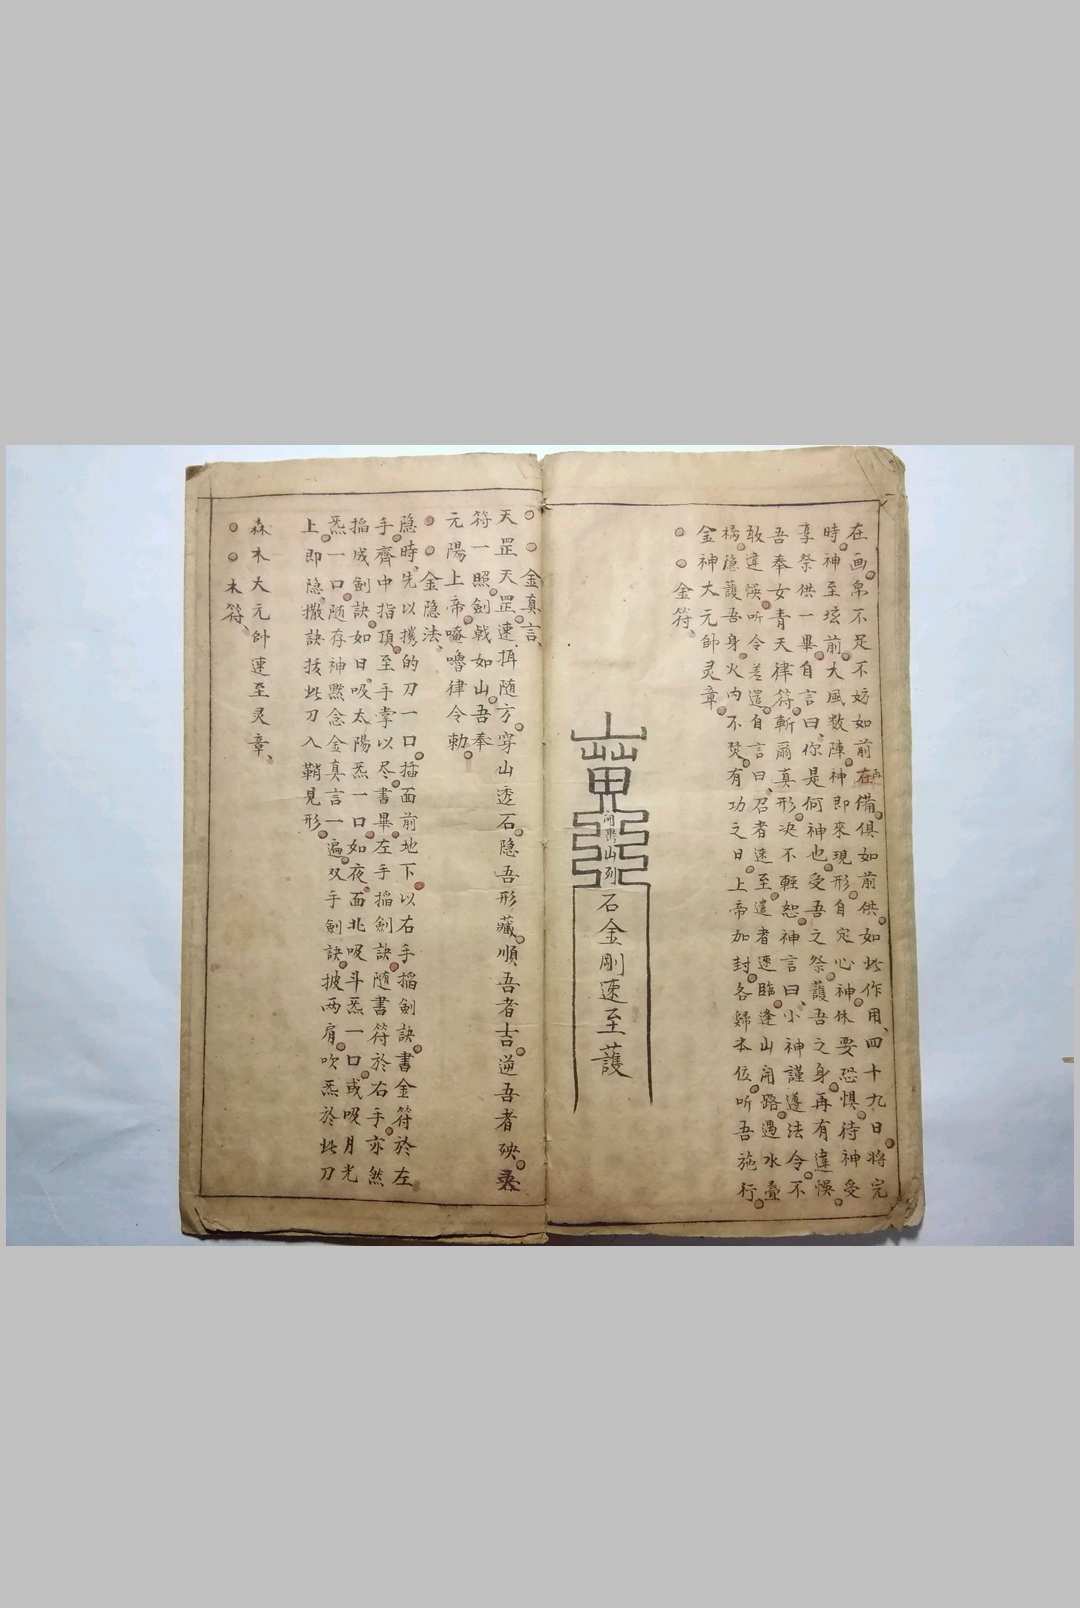 在画帛不足不妨如前在再備俱如前供如此作用四十九日將完
時神至坛前大風数陣神即來現形自定心神休要恐惧待神受
享祭供一畢自言曰你是何神也受吾之祭護吾之身再有違悞
吾奉女青天律符斬爾真形决不輕恕神言曰小神謹遵法令不
敢違悞听令差遣自言曰召者速至遣者速臨逢山開路遇水
橋隐護吾身火内不焚有功之日上帝加封各歸本位听吾施行
金神大元帥灵章
金符
山列
石金剛速至護
金真言
天罡天罡速揖随方穿山透石隐吾形藏順吾者吉逆吾者殃
符一照劍戟如山吾奉
元陽上帝唵嚕律令勅
金隐法
隐時先以擕的刀一口插面前地下以右手搯劍訣書金符於左
手齊中指頂至手掌以尽書畢左手搯劍訣随書符於右手亦然
搯成劍訣如日吸太陽炁一口如夜面北吸斗炁一口或吸月光
炁一口随存神黙念金真言一遍双手劍訣披两肩吹炁於此刀
上即隐撒訣拔此刀入鞘見形
森木大元帥速至灵章
木符